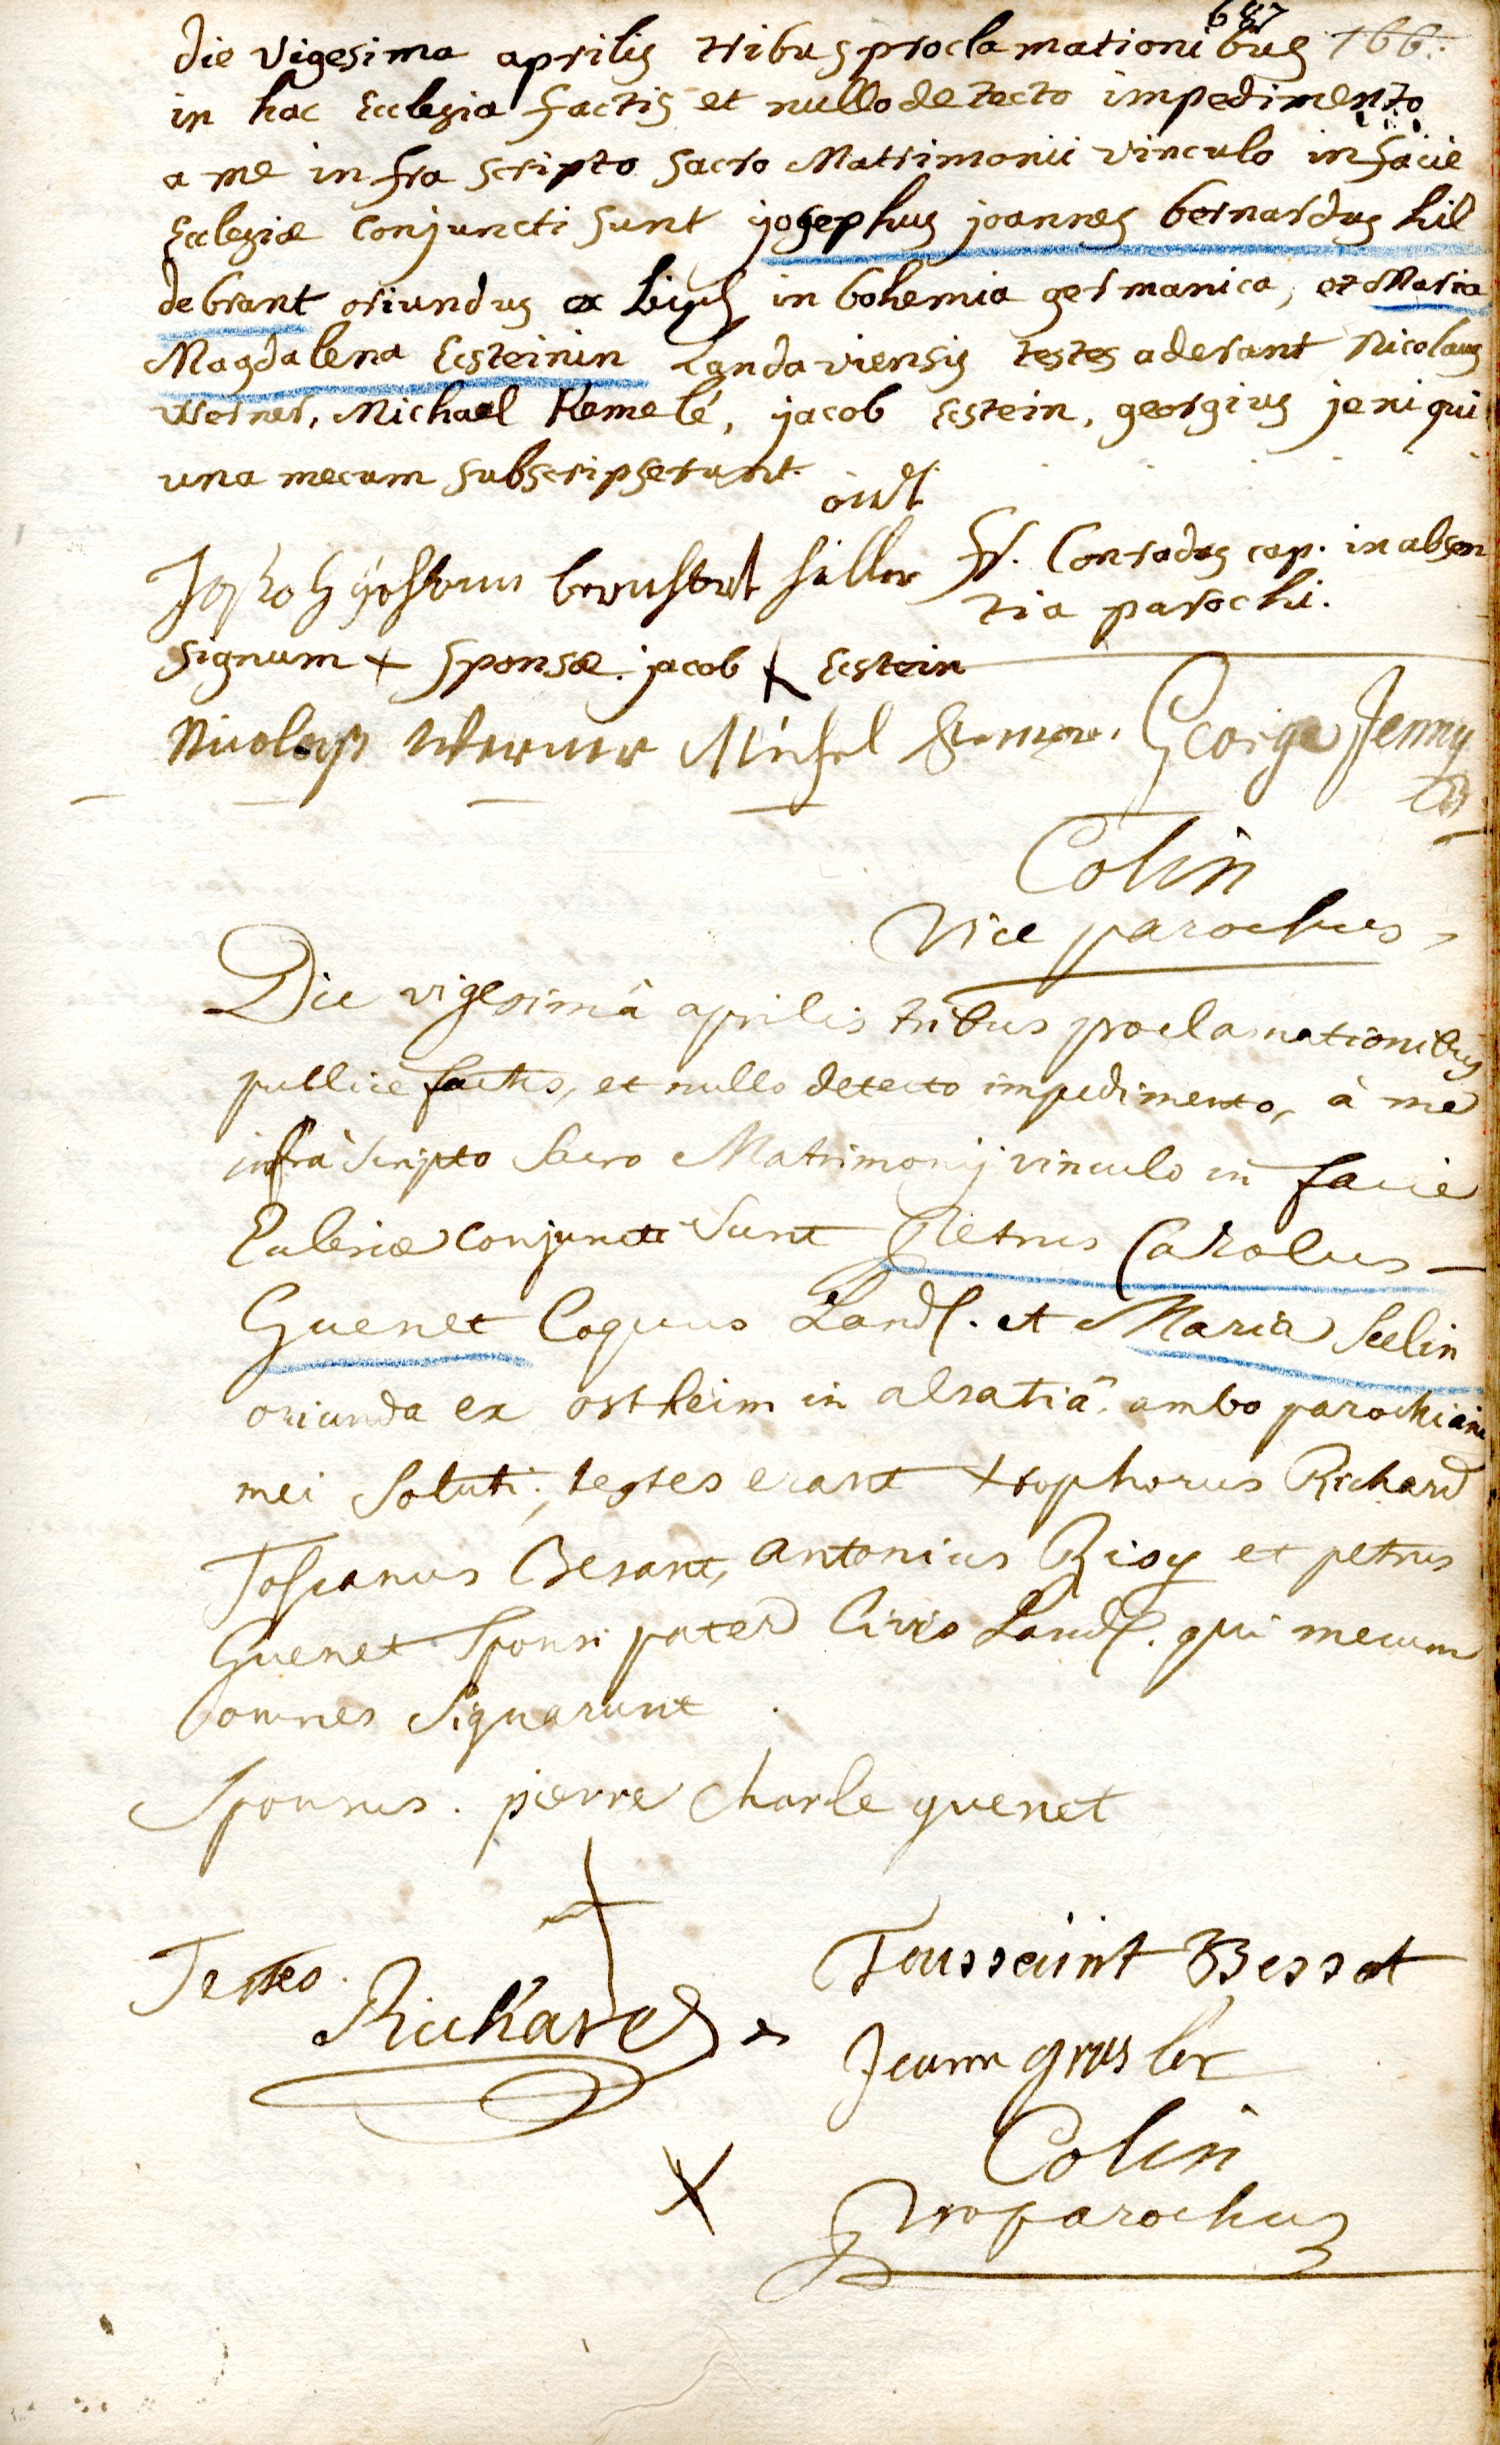 687
die vigesima aprilis tribus proclamationibus 166.
in hac Ecclesia factis et nullo detecto impedimento
a me infra scripto sacro Matrimonii vinculo in facie
Ecclesiæ conjuncti sunt josephus joannes bernardus hil
debrant oriundus ex in bohemia germanica, et Maria
Magdalena Ecsteinin Landaviensis testes aderant Nicolaus
werner, Michael Kemelé, jacob Ecstein, georgius jeni qui
una mecum subscripserunt.
fr. Conradus cap. in absen
tia parochi.
signum + sponsæ. jacob + Ecstein
Nicolaus Werner Michel George Jenny
Colin
Vice parochus
Die vigesimâ aprilis tribus proclamationibus
publice factis, et nullo detecto impedimento, à me
infrà scripto sacro Matrimonij vinculo in facie
Ecclesiæ conjuncti sunt Petrus Carolus
Guenet Coquus Land. et Maria Seelin
oriunda ex ostheim in alsatiâ. ambo parochiani
mei soluti; testes erant Xtophorus Richard
Toscanus Besant, antonius Bisy et petrus
Guenet sponsi pater Civis Land. qui mecum
omnes signarunt.
Sponsus. pierre charle guenet
+
Testes.
Richard
Toussaint Bessat
Colin
proparochus
X